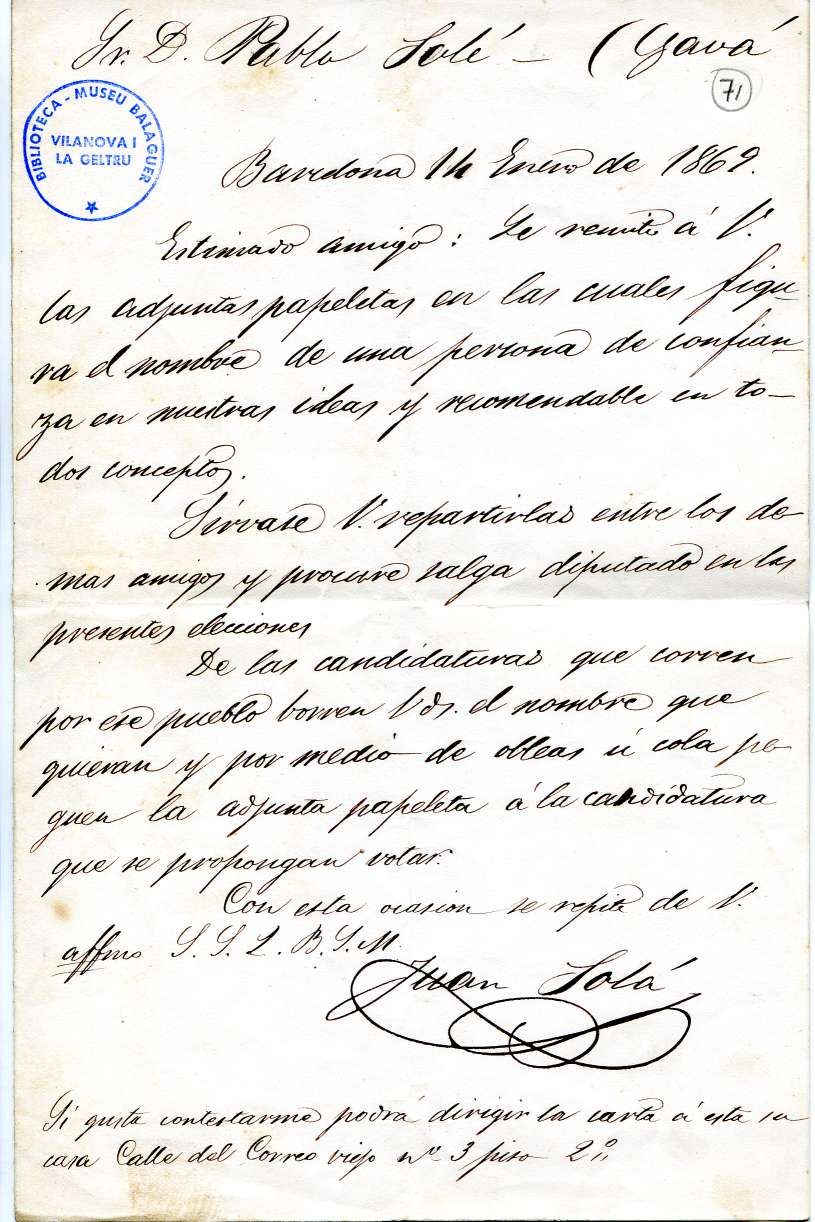 Sr. D. Pablo Solé – (Gavá
71
BIBLIOTECA - MUSEU BALAGUER
VILANOVA I
LA GELTRU
Barcelona 14 Enero de 1869.
Estimado amigo: Le remito á V.
las adjuntas papeletas en las cuales figu-
ra el nombre de una persona de confian-
za en nuestras ideas y recomendable en to-
dos conceptos.
Sírvase V. repartirlas entre los de-
mas amigos y procure salga diputado en las
presentes elecciones
De las candidaturas que corren
por ese pueblo borren Vds. el nombre que
quieran y por medio de obleas ú cola pe-
guen la adjunta papeleta á la candidatura
que se propongan votar.
Con esta ocasion se repite de V.
affmo S. S. Q. B. S. M.
Juan Solá
Si gusta contestarme podrá dirigir la carta á esta su
casa Calle del Correo viejo nº 3 piso 2º